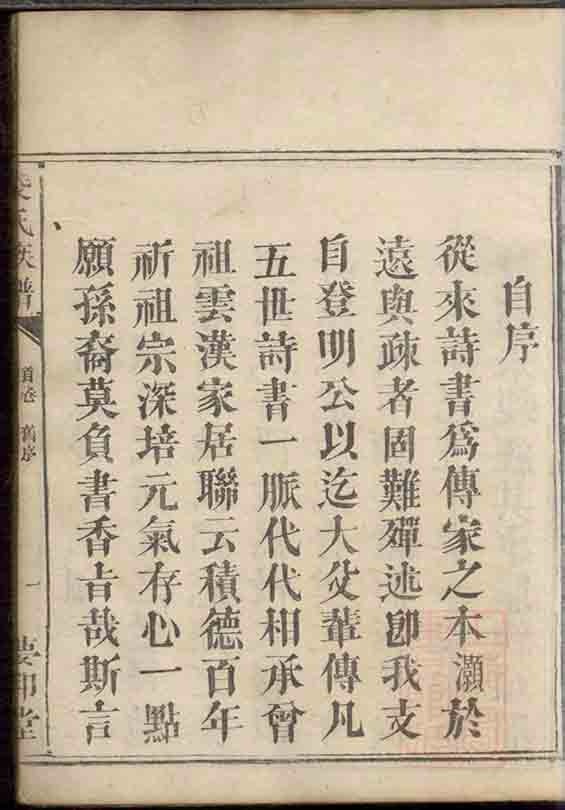 自序
從來詩書爲傳家之本灝於
遠與疎者固難殫述卽我支
自登明公以迄大父輩傳凡
五世詩書一脈代代相承曾
祖雲漢家居聯云積德百年
祈祖宗深培元氣存心一點
願孫裔莫負書香旨哉斯言
氏族譜
首卷 舊序
一
堂